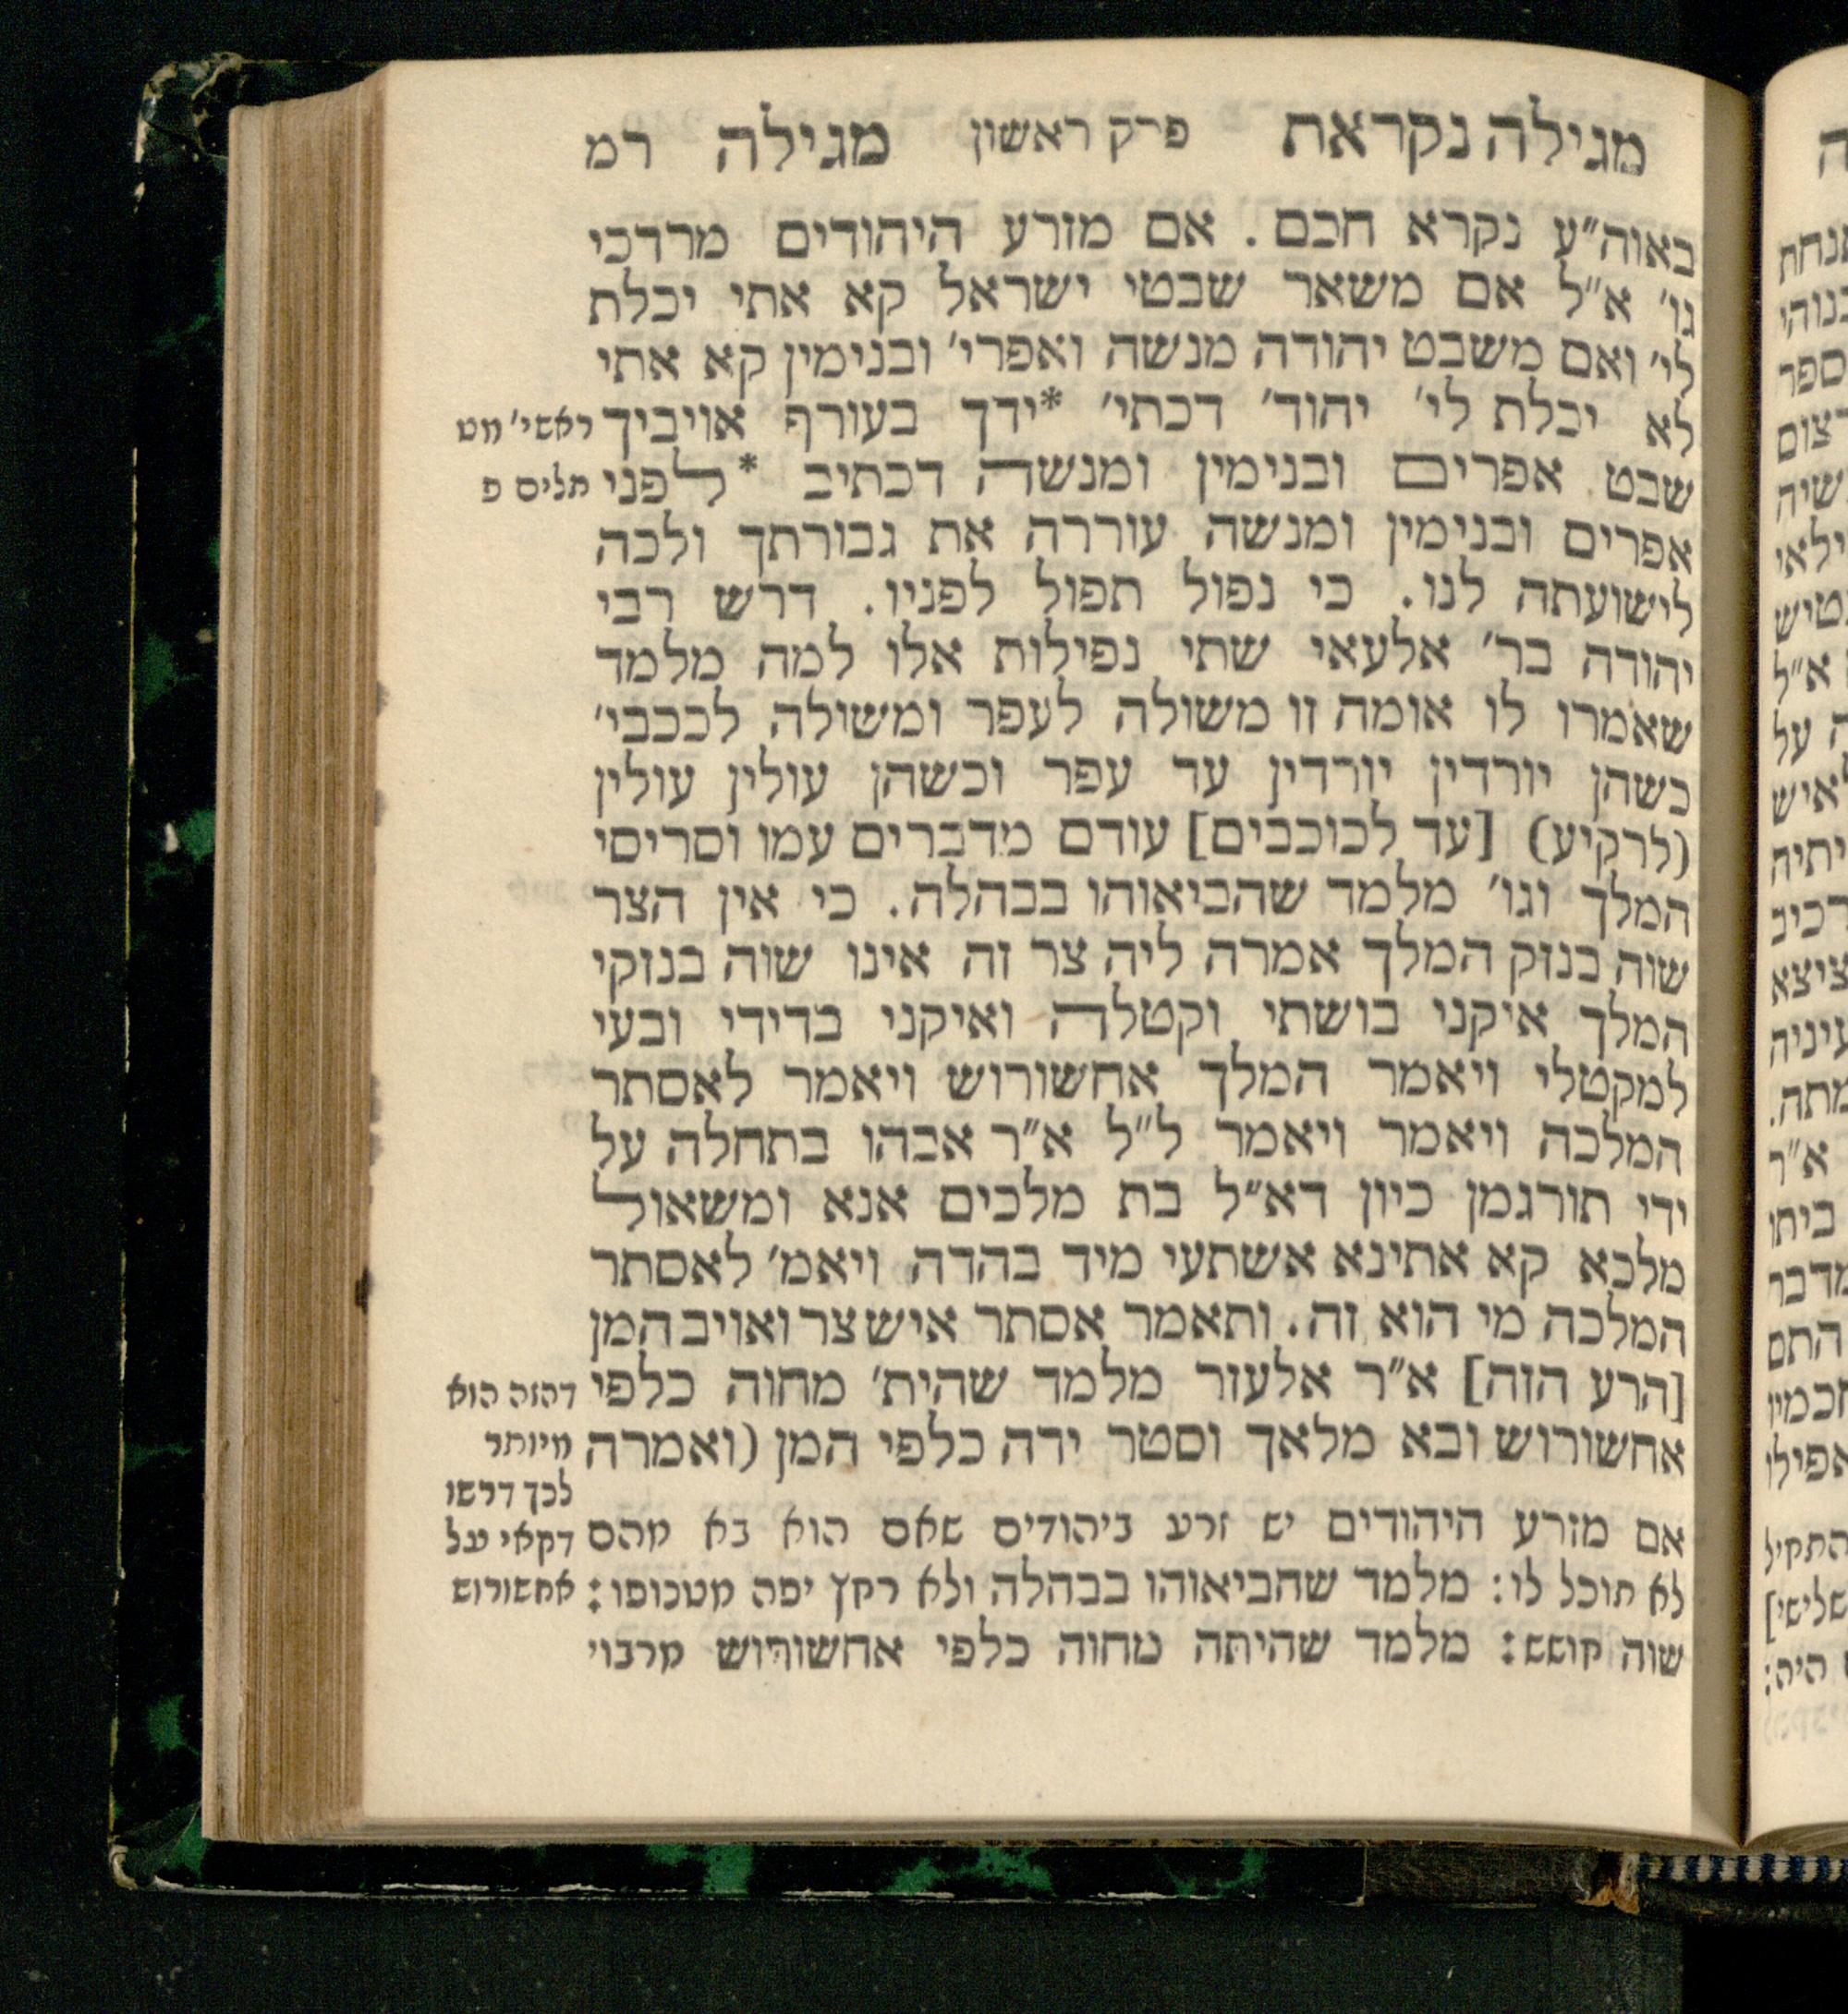 מגילה נקראת פרק ראשון מגילה רמ
באוה״ע נקרא חכם. אם מזרע היהודים מרדכי
גו׳ א״ל אם משאר שבטי ישראל קא אתי יכלת
לי׳ ואם משבט יהודה מנשה ואפרי׳ ובנימין קא אתי
לא יכלת לי׳ יהוד׳ דכתי׳ *ידך בעורף אויביך
שבט אפרים ובנימין ומנשה דכתיב *לפני
אפרים ובנימין ומנשה עוררה את גבורתך ולכה
לישועתה לנו. כי נפול תפול לפניו. דרש רבי
יהודה בר׳ אלעאי שתי נפילות אלו למה מלמד
שאמרו לו אומה זו משולה לעפר ומשולה לככבי׳
כשהן יורדין יורדין עד עפר וכשהן עולין עולין
(לרקיע) [עד לכוכבים] עודם מדברים עמו וסריסי
המלך וגו׳ מלמד שהביאוהו בבהלה. כי אין הצר
שוה בנזק המלך אמרה ליה צר זה אינו שוה בנזקי
המלך איקני בושתי וקטלה ואיקני בדידי ובעי
למקטלי ויאמר המלך אחשורוש ויאמר לאסתר
המלכה ויאמר ויאמר ל״ל א״ר אבהו בתחלה על
ידי תורגמן כיון דא״ל בת מלכים אנא ומשאול
מלכא קא אתינא אשתעי מיד בהדה ויאמ׳ לאסתר
המלכה מי הוא זה. ותאמר אסתר איש צר ואויב המן
[הרע הזה] א״ר אלעזר מלמד שהית׳ מחוה כלפי
אחשורוש ובא מלאך וסטר ידה כלפי המן (ואמרה
אם מזרע היהודים יש זרע ביהודים שאם הוא בא מהם
לא תוכל לו: מלמד שהביאוהו בבהלה ולא רחץ יפה מטנופו:
שוה חושש: מלמד שהיתה מחוה כלפי אחשורוש מרבוי
ראשי׳ מט
תלים פ
דהזה הוא
מיותר
לכך דרשו
דקאי על
אחשורוש